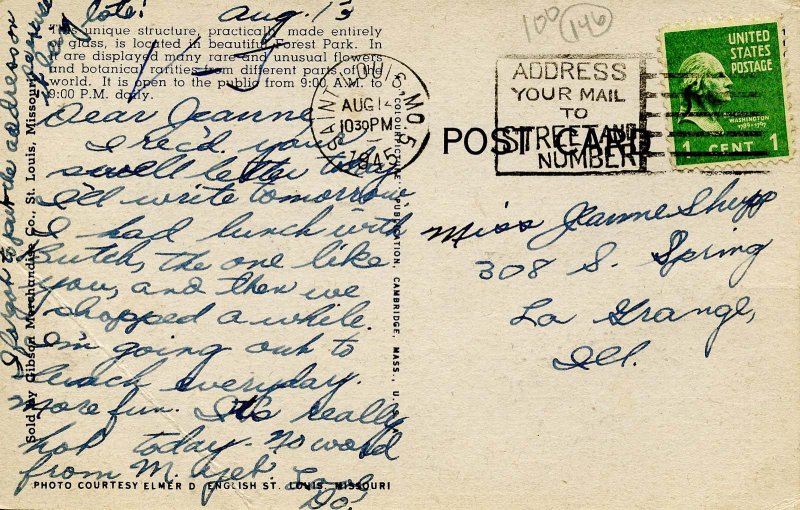 Aug. 13
This unique structure, practically made entirely
of glass, is located in beautiful Forest Park. In
it are displayed many rare and unusual flowers
and botanical rarities from different parts of the
world. It is open to the public from 9:00 A.M. to
9:00 P.M. daily.
Dear Jeanne
I rec'd. your
swell letter today
I'll write tomorrow
I had lunch with
Butch, the one like
you, and then we
shopped a while.
I'm going out to
lunch everyday.
More fun. It's really
hot today. No word
from M. yet. Love,
Do!
I forgot to put the address on
late!
PHOTO COURTESY ELMER D ENGLISH ST. LOUIS, MISSOURI
Sold by Gibson Merchandise Co., St. Louis, Missouri
COLOURPICTURE PUBLICATION, CAMBRIDGE, MASS., U.S.A.
SAINT LOUIS, MO. 5
AUG 14
1030 PM
1945
100 146
ADDRESS
YOUR MAIL
TO
STREET AND
NUMBER
POST CARD
UNITED
STATES
POSTAGE
WASHINGTON
1789-1797
1 CENT 1
Miss Jeanne Shupp
308 S. Spring
La Grange,
Ill.